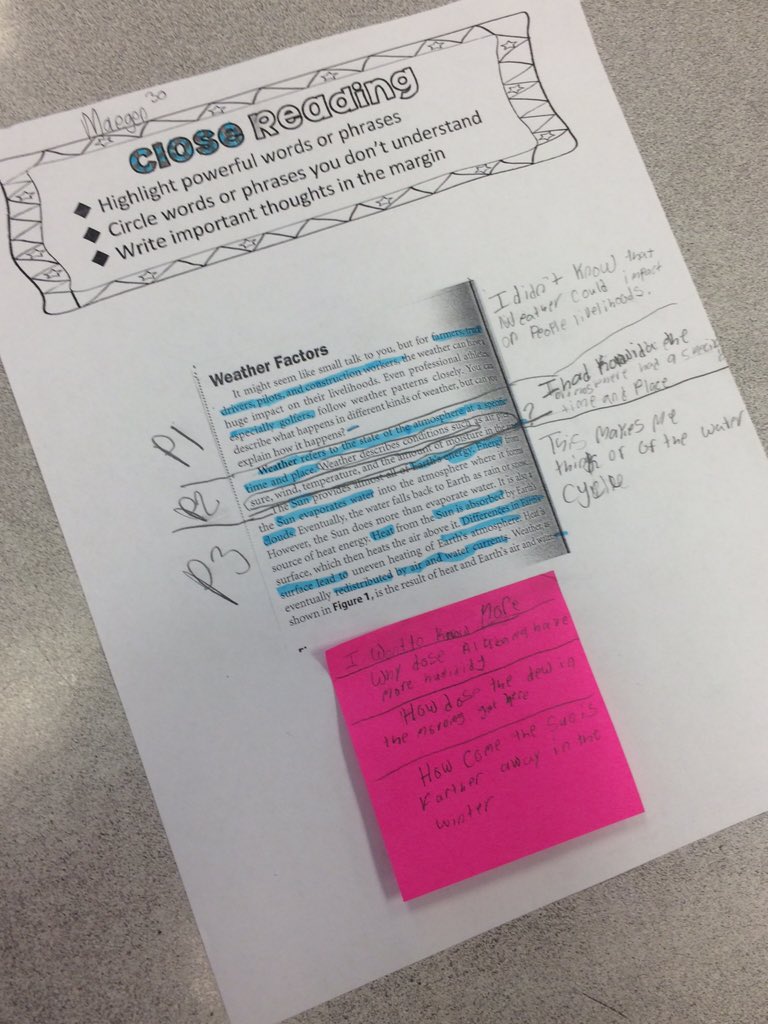 Maegen 30
Close Reading
◆ Highlight powerful words or phrases
◆ Circle words or phrases you don't understand
◆ Write important thoughts in the margin
Weather Factors
It might seem like small talk to you, but for farmers, truck
drivers, pilots, and construction workers, the weather can have
huge impact on their livelihoods. Even professional athletes
especially golfers, follow weather patterns closely. You can
describe what happens in different kinds of weather, but can
explain how it happens?
Weather refers to the state of the atmosphere at a specific
time and place. Weather describes conditions such as air
sure, wind, temperature, and the amount of moisture in the
The Sun provides almost all of Earth's energy. Energy from
the Sun evaporates water into the atmosphere where it forms
clouds. Eventually, the water falls back to Earth as rain or snow.
However, the Sun does more than evaporate water. It is also
source of heat energy. Heat from the Sun is absorbed by Earth's
surface, which then heats the air above it. Differences in Earth's
surface lead to uneven heating of Earth's atmosphere. Heat is
eventually redistributed by air and water currents. Weather, as
shown in Figure 1, is the result of heat and Earth's air and water
P1
P2
P3
I didn't know that
Weather could impact
on People livelihoods.
2
I had
atmosphere had a
time and Place
This Makes Me
think or of the water
cycle
I Want to Know More
Why dose Alabama have
More
How dose the dew in
the morning get here
How come the Sun is
farther away in the
winter